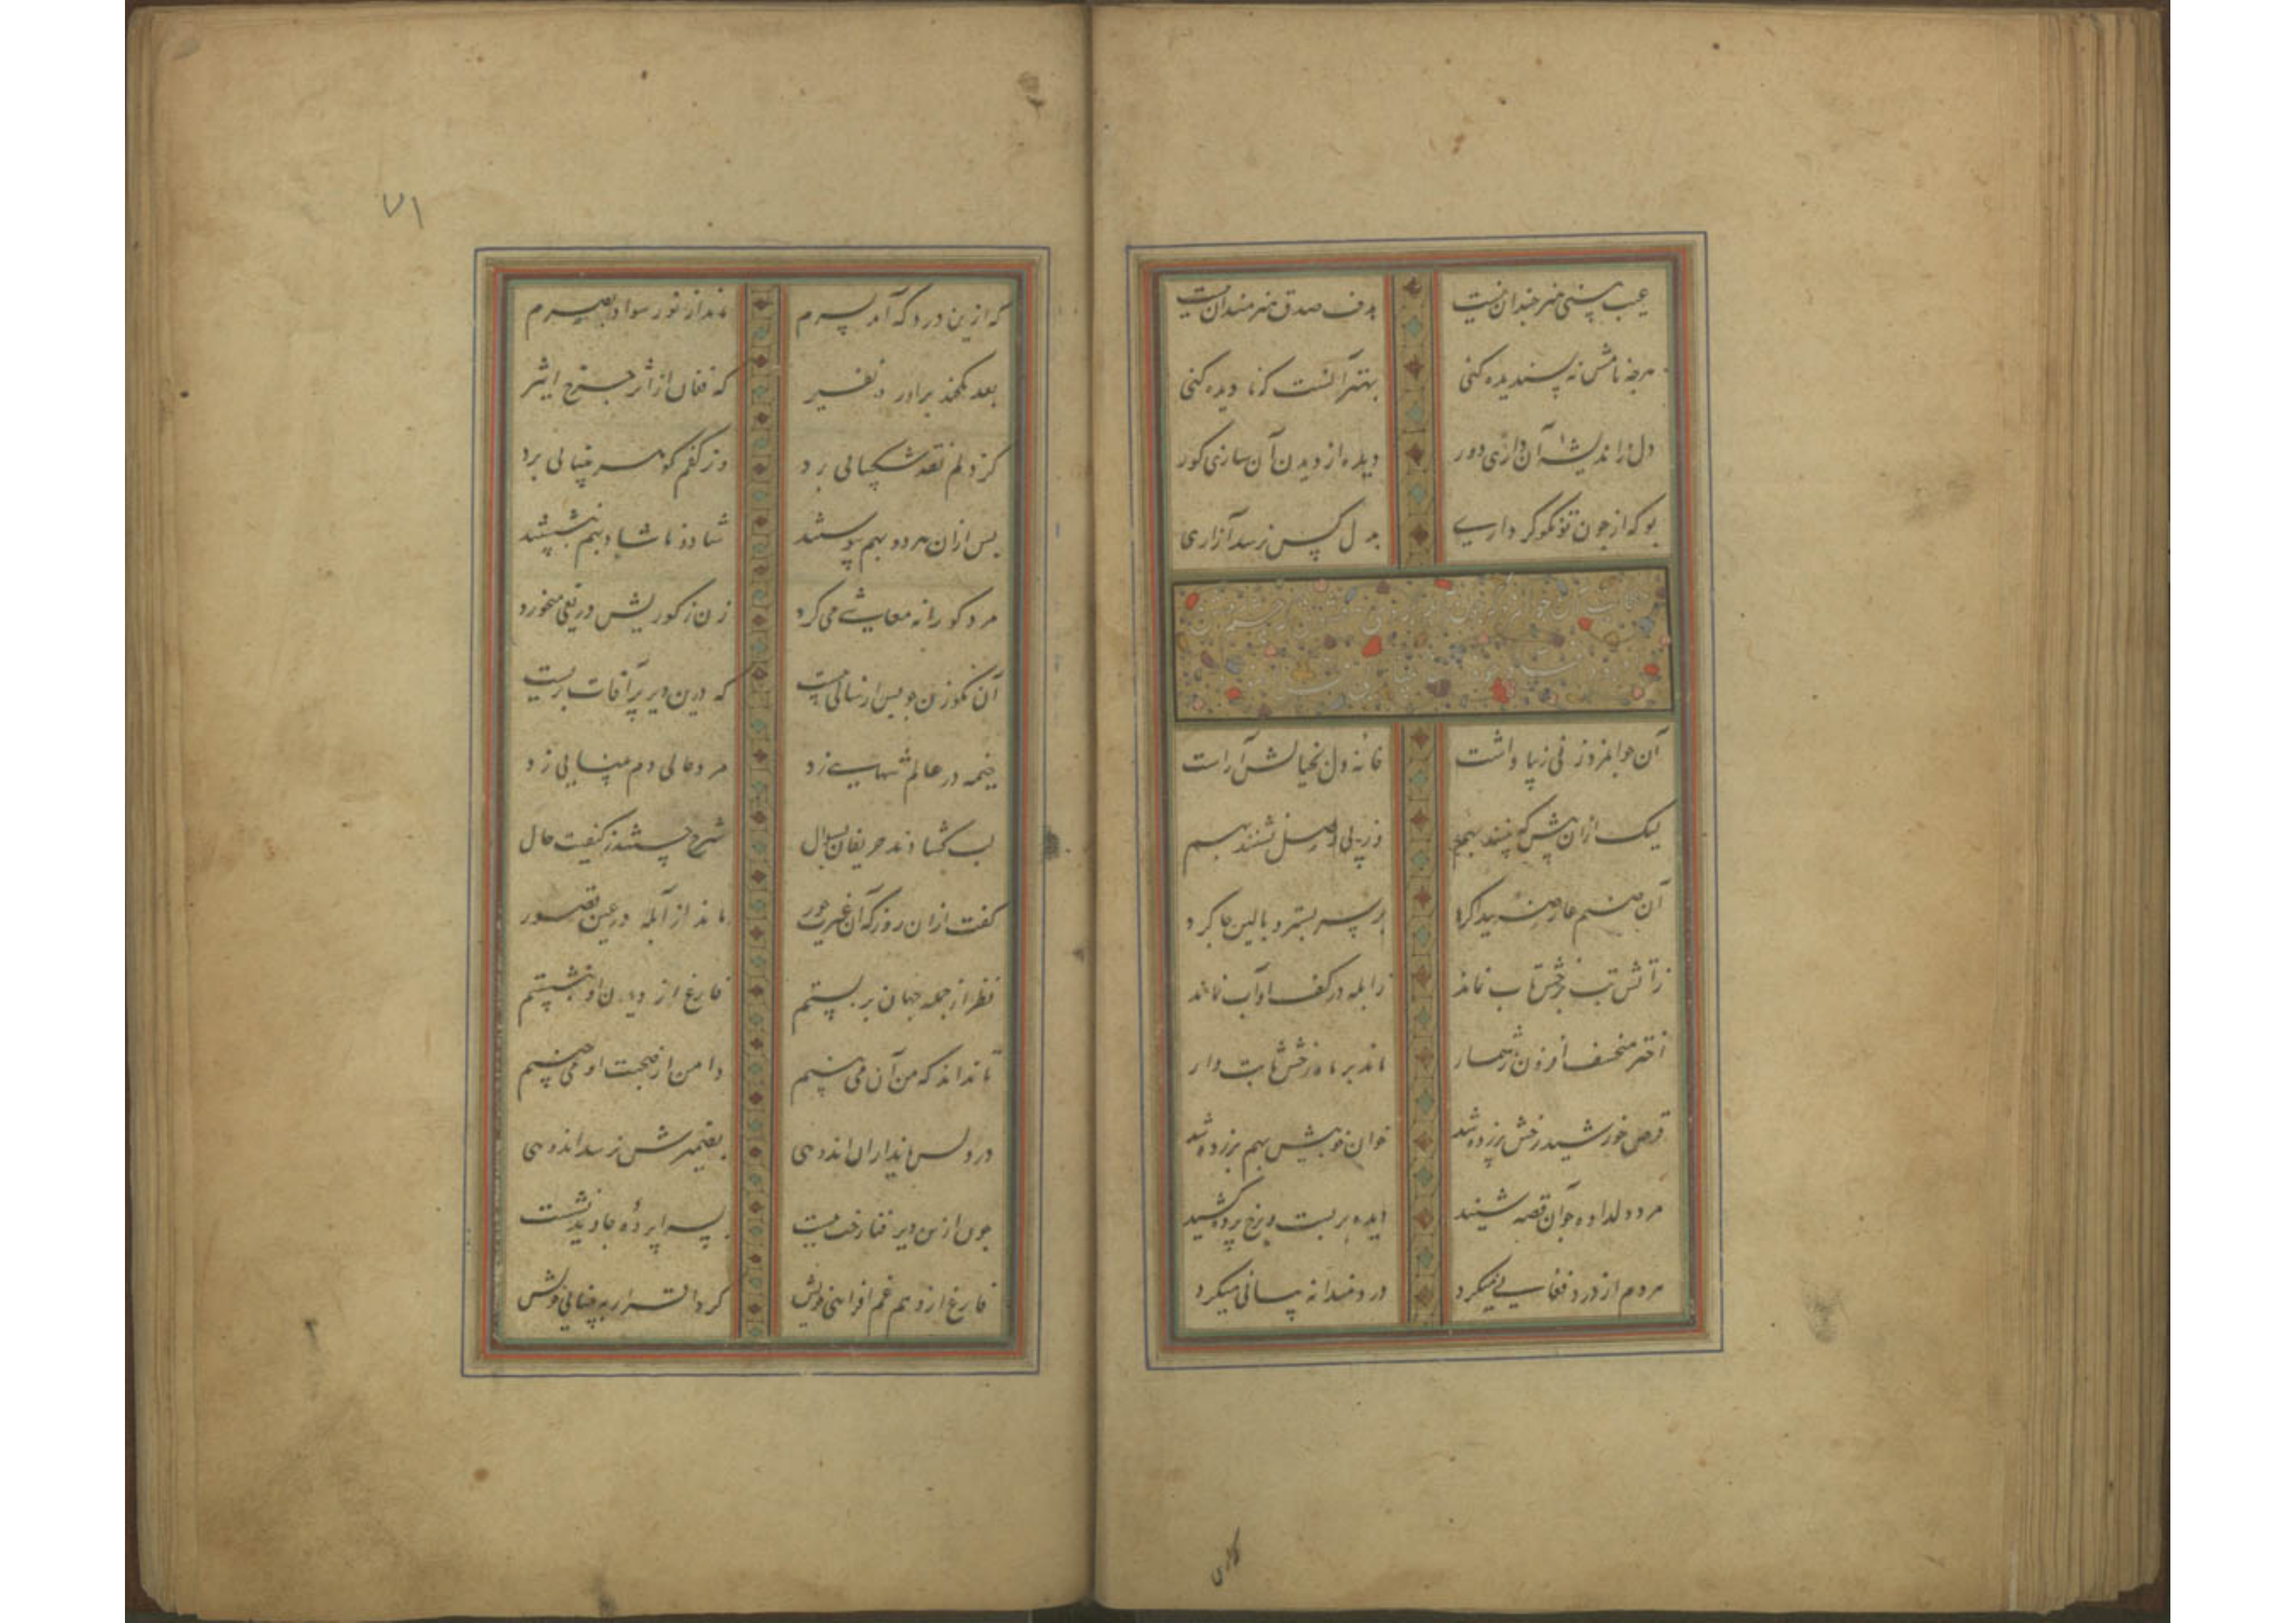 عیب بینی هنر چندان نیست هدف صدق هنرمندان نیست
هرچه نامش نه پسندیده کنی بهتر آنست که نادیده کنی
دل ز اندیشه آن داری دور دیده از دیدن آن سازی کور
بو که از چون تو نکوکرداری به دل کس نرسد آزاری
آن جوانمرد زنی زیبا داشت خانه دل بخیالش آراست
لیک ازان پیش که بینند بهم وز پی وصل نشینند بهم
آن صنم عارضه پیدا کرد بر سر بستر و بالین جا کرد
ز آتش تب برخش تاب نماند ز ابله در کف او آب نماند
اختر منخسف افزون ز شمار ماند بر ماه رخش ثابت وار
قرص خورشید رخش برزده شد خوان خوبیش بهم برزده شد
مرد دلداده چو آن قصه شنید دیده بر بست و برخ پرده کشید
هر دم از درد فغانی میکرد دردمندانه بیانی میکرد
کاری
۷۱
که ازین درد که آمد بسرم ماند از نور سواد بصرم
بعد یکچند برآورد نفیر که فغان از اثر چرخ اثیر
کز دلم نقد شکیبائی برد وز کفم گوهر بینائی برد
پس ازان هر دو بهم پیوستند شاد و ناشاد بهم بنشستند
مرد کورانه معاش می کرد زن ز کوریش دریغی میخورد
آن نکو زن چو پس از سالی بیست که درین دیر پر آفات بزیست
خیمه در عالم تنهایی زد مرد حالی دم بینایی زد
لب گشادند حریفان بسوال شرح جستند ز کیفیت حال
گفت ازان روز که آن غیرت حور ماند از آبله در عین قصور
نظر از جمله جهان بر بستم فارغ از دیدن او بنشستم
تا نداند که من آن می بینم دامن از صحبت او می چینم
در دلش زان اندوهی بضمیرش نرسد اندوهی
چون ازین دیر فنا رخت ببست پس پرده جاوید نشست
فارغ از وهم غم افزائی خویش کردم اقرار به بینائی خویش